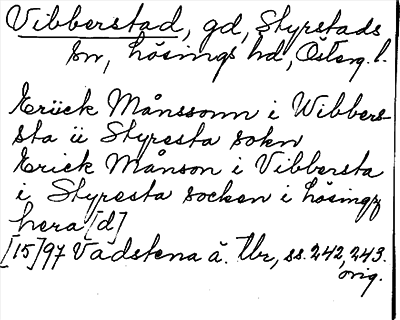 Vibberstad, gd, Styrstads
sn, Lösings hd, Österg. l.
Erück Månssonn i Wibbers-
sta ii Styresta sokn
Erick Månson i Vibbersta
i Styresta socken i Lösingz
hera[d]
[15]97 Vadstena ä. Tbr, ss. 242, 243.
orig.